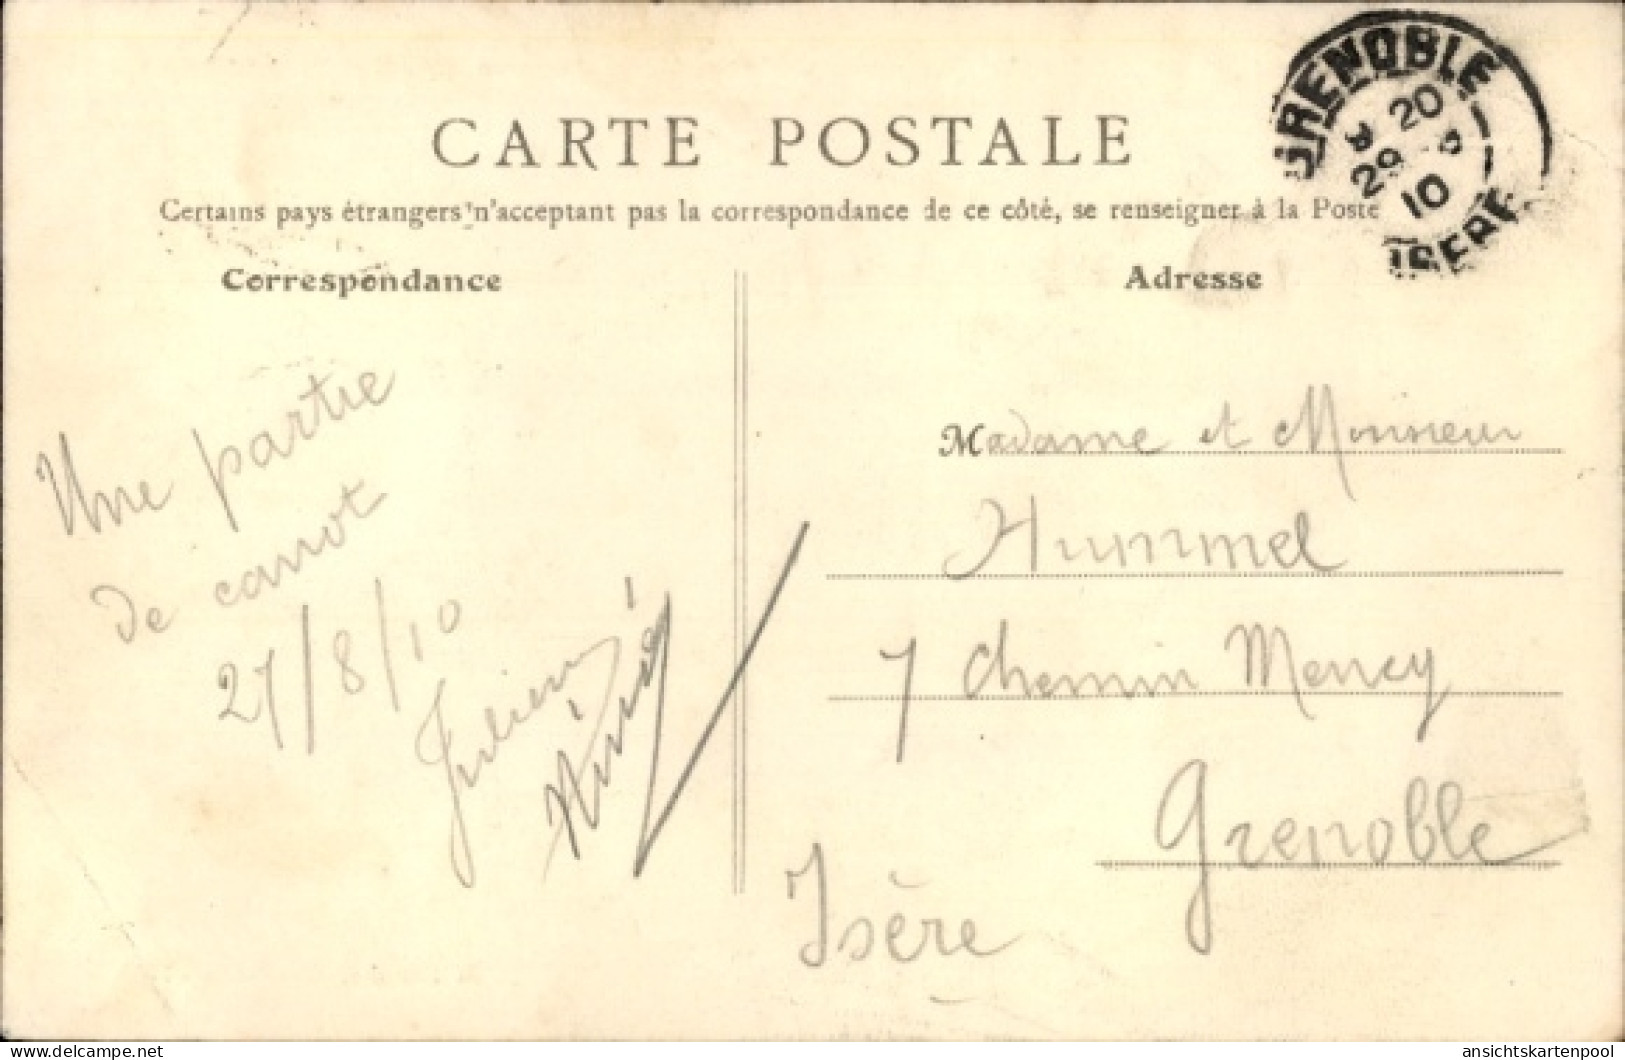 GRENOBLE
20
29
10
ISERE
CARTE POSTALE
Certains pays étrangers n'acceptant pas la correspondance de ce côté, se renseigner à la Poste
Correspondance
Une partie
de canot
27/8/10
Julien
Adresse
Madame et Monsieur
Hummel
7 Chemin Mency
Grenoble
Isère
www.delcampe.net
ansichtskartenpool